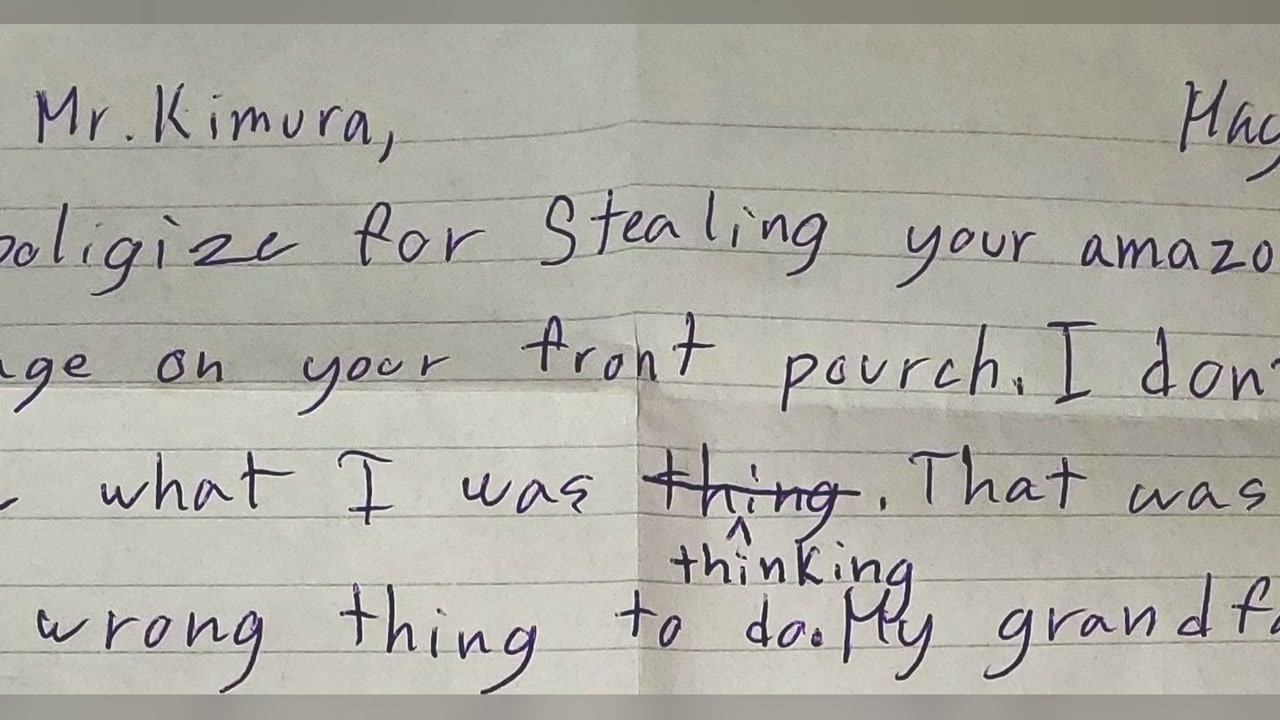 Mr. Kimura, May
poligize for Stealing your amazo
age on your front pourch. I don'
what I was thing. That was
thinking
wrong thing to do. My grandfa